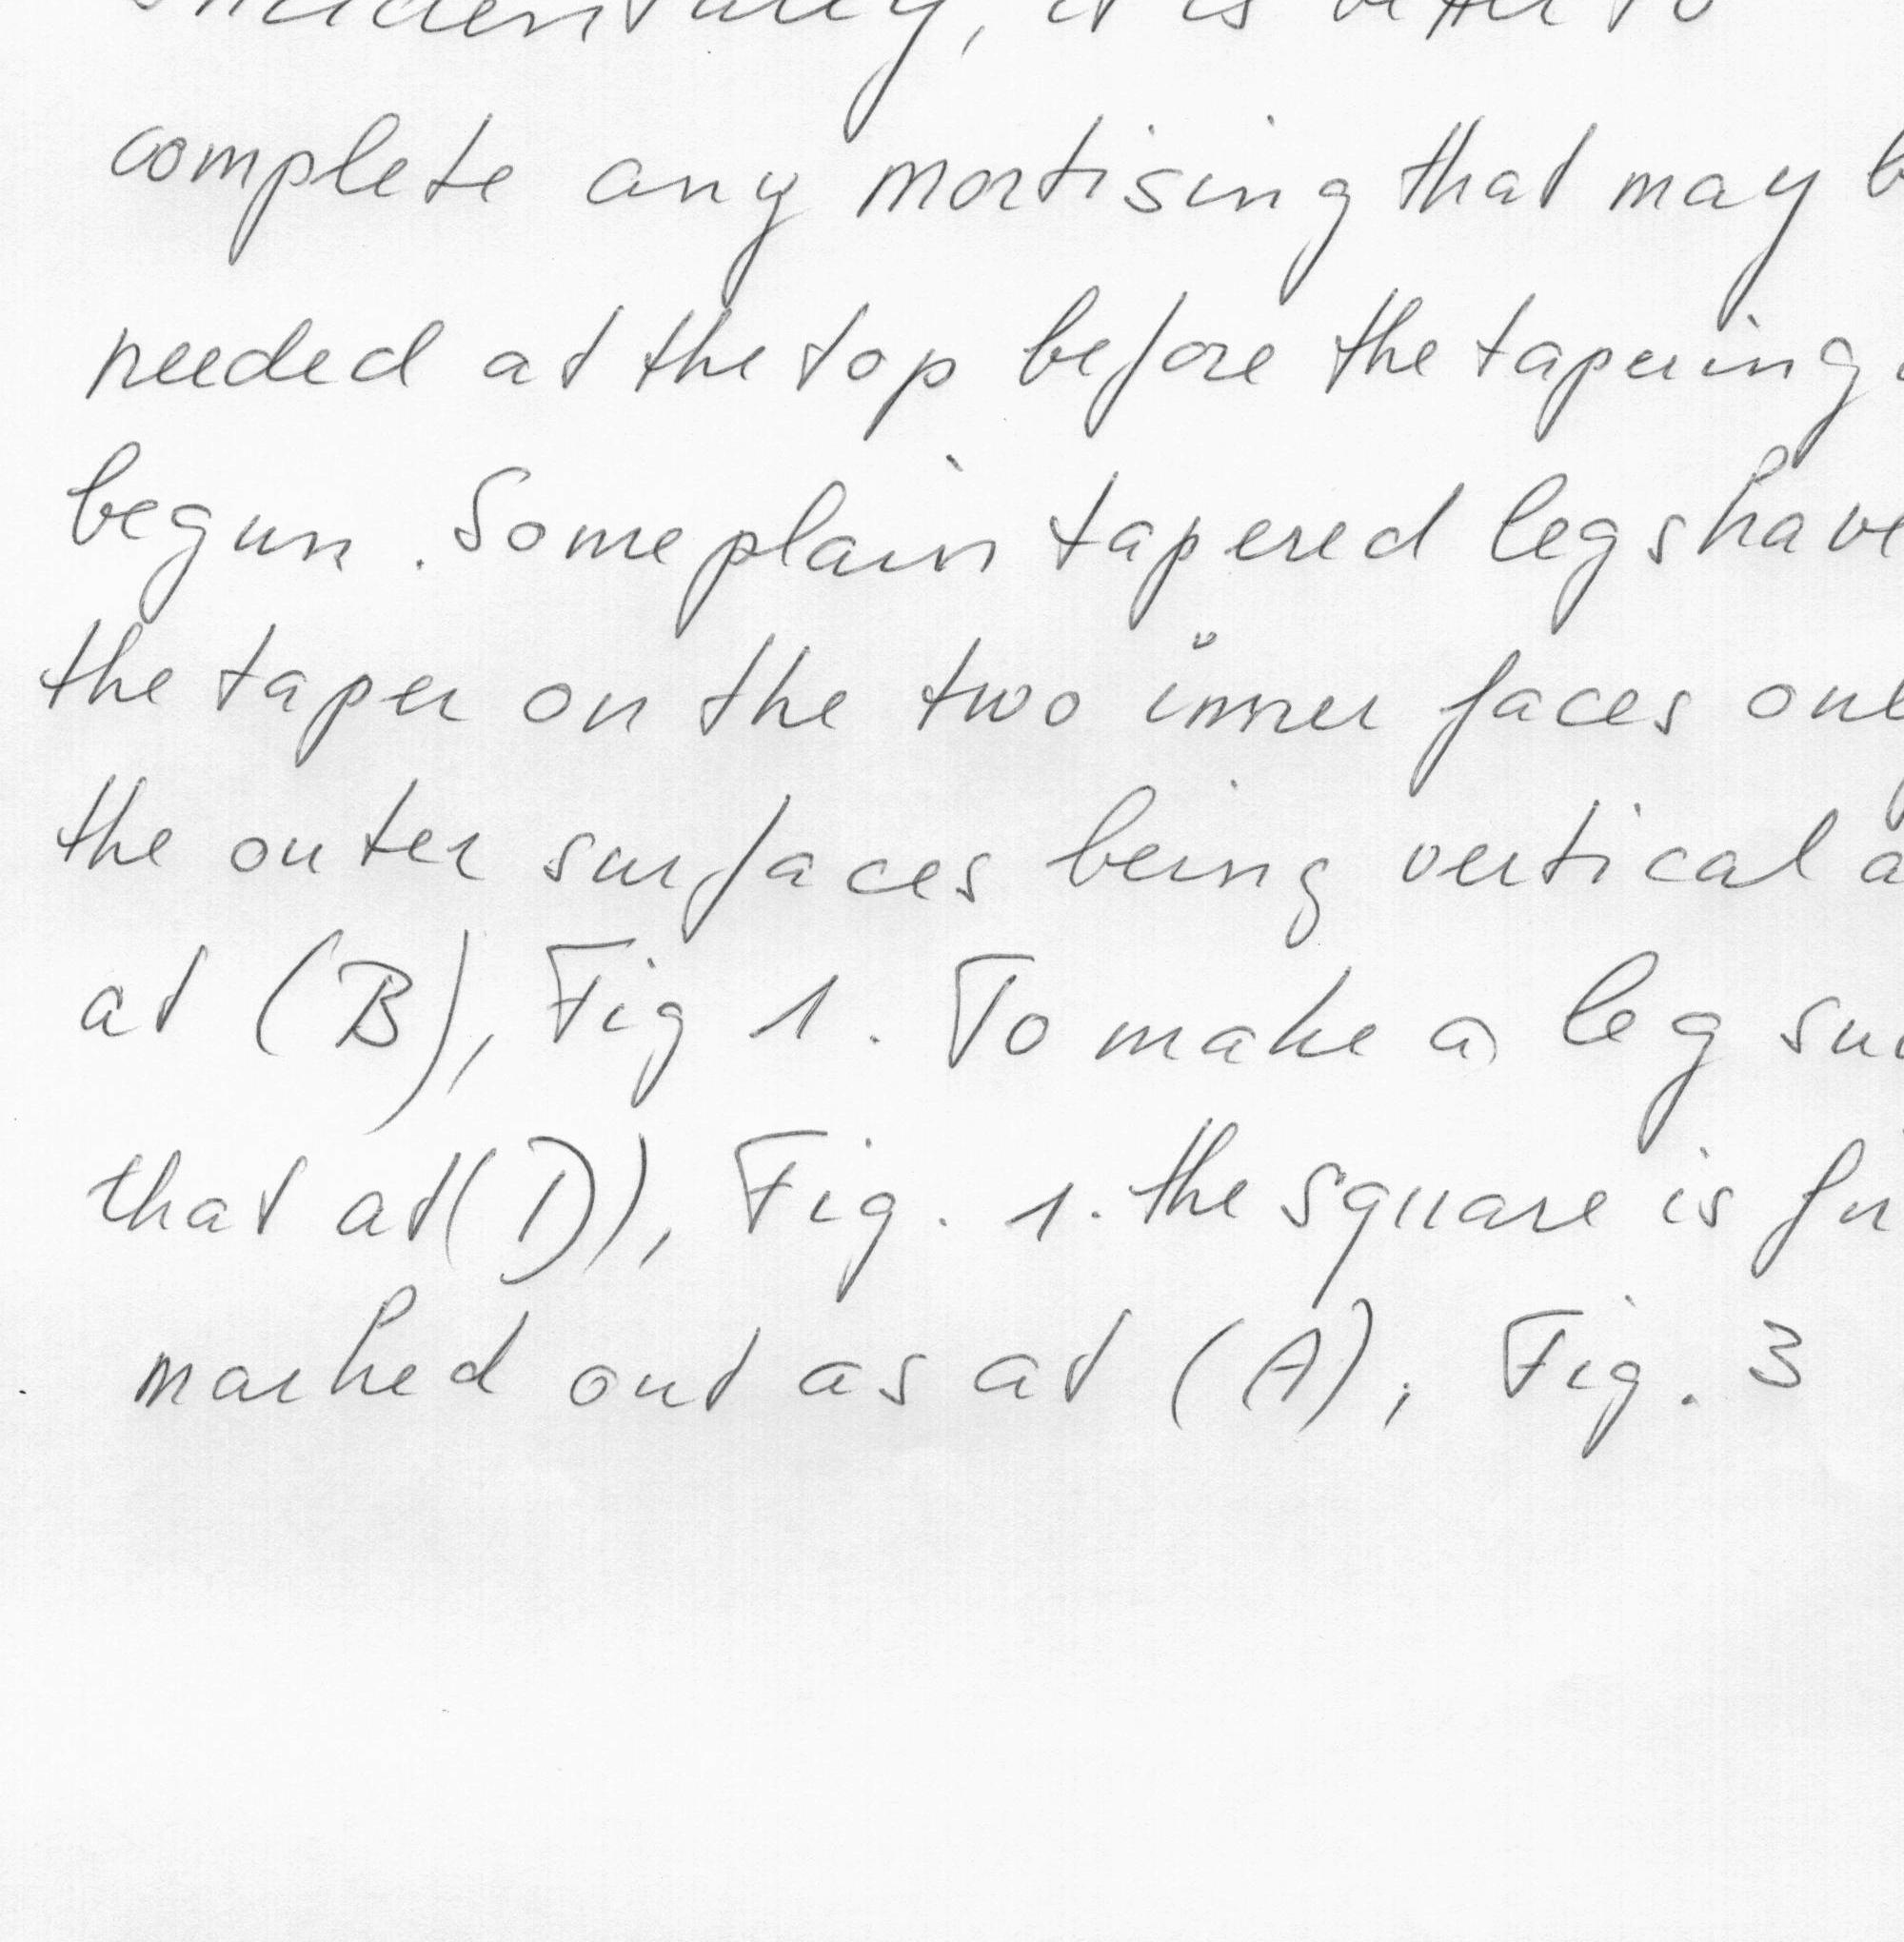 incidentally, it is better to
complete any mortising that may
needed at the top before the tapering
begun. Some plain tapered legs have
the taper on the two inner faces
the outer surfaces being vertical
at (B), Fig 1. To make a leg
that at (D), Fig. 1. the square is
marked out as at (A), Fig. 3